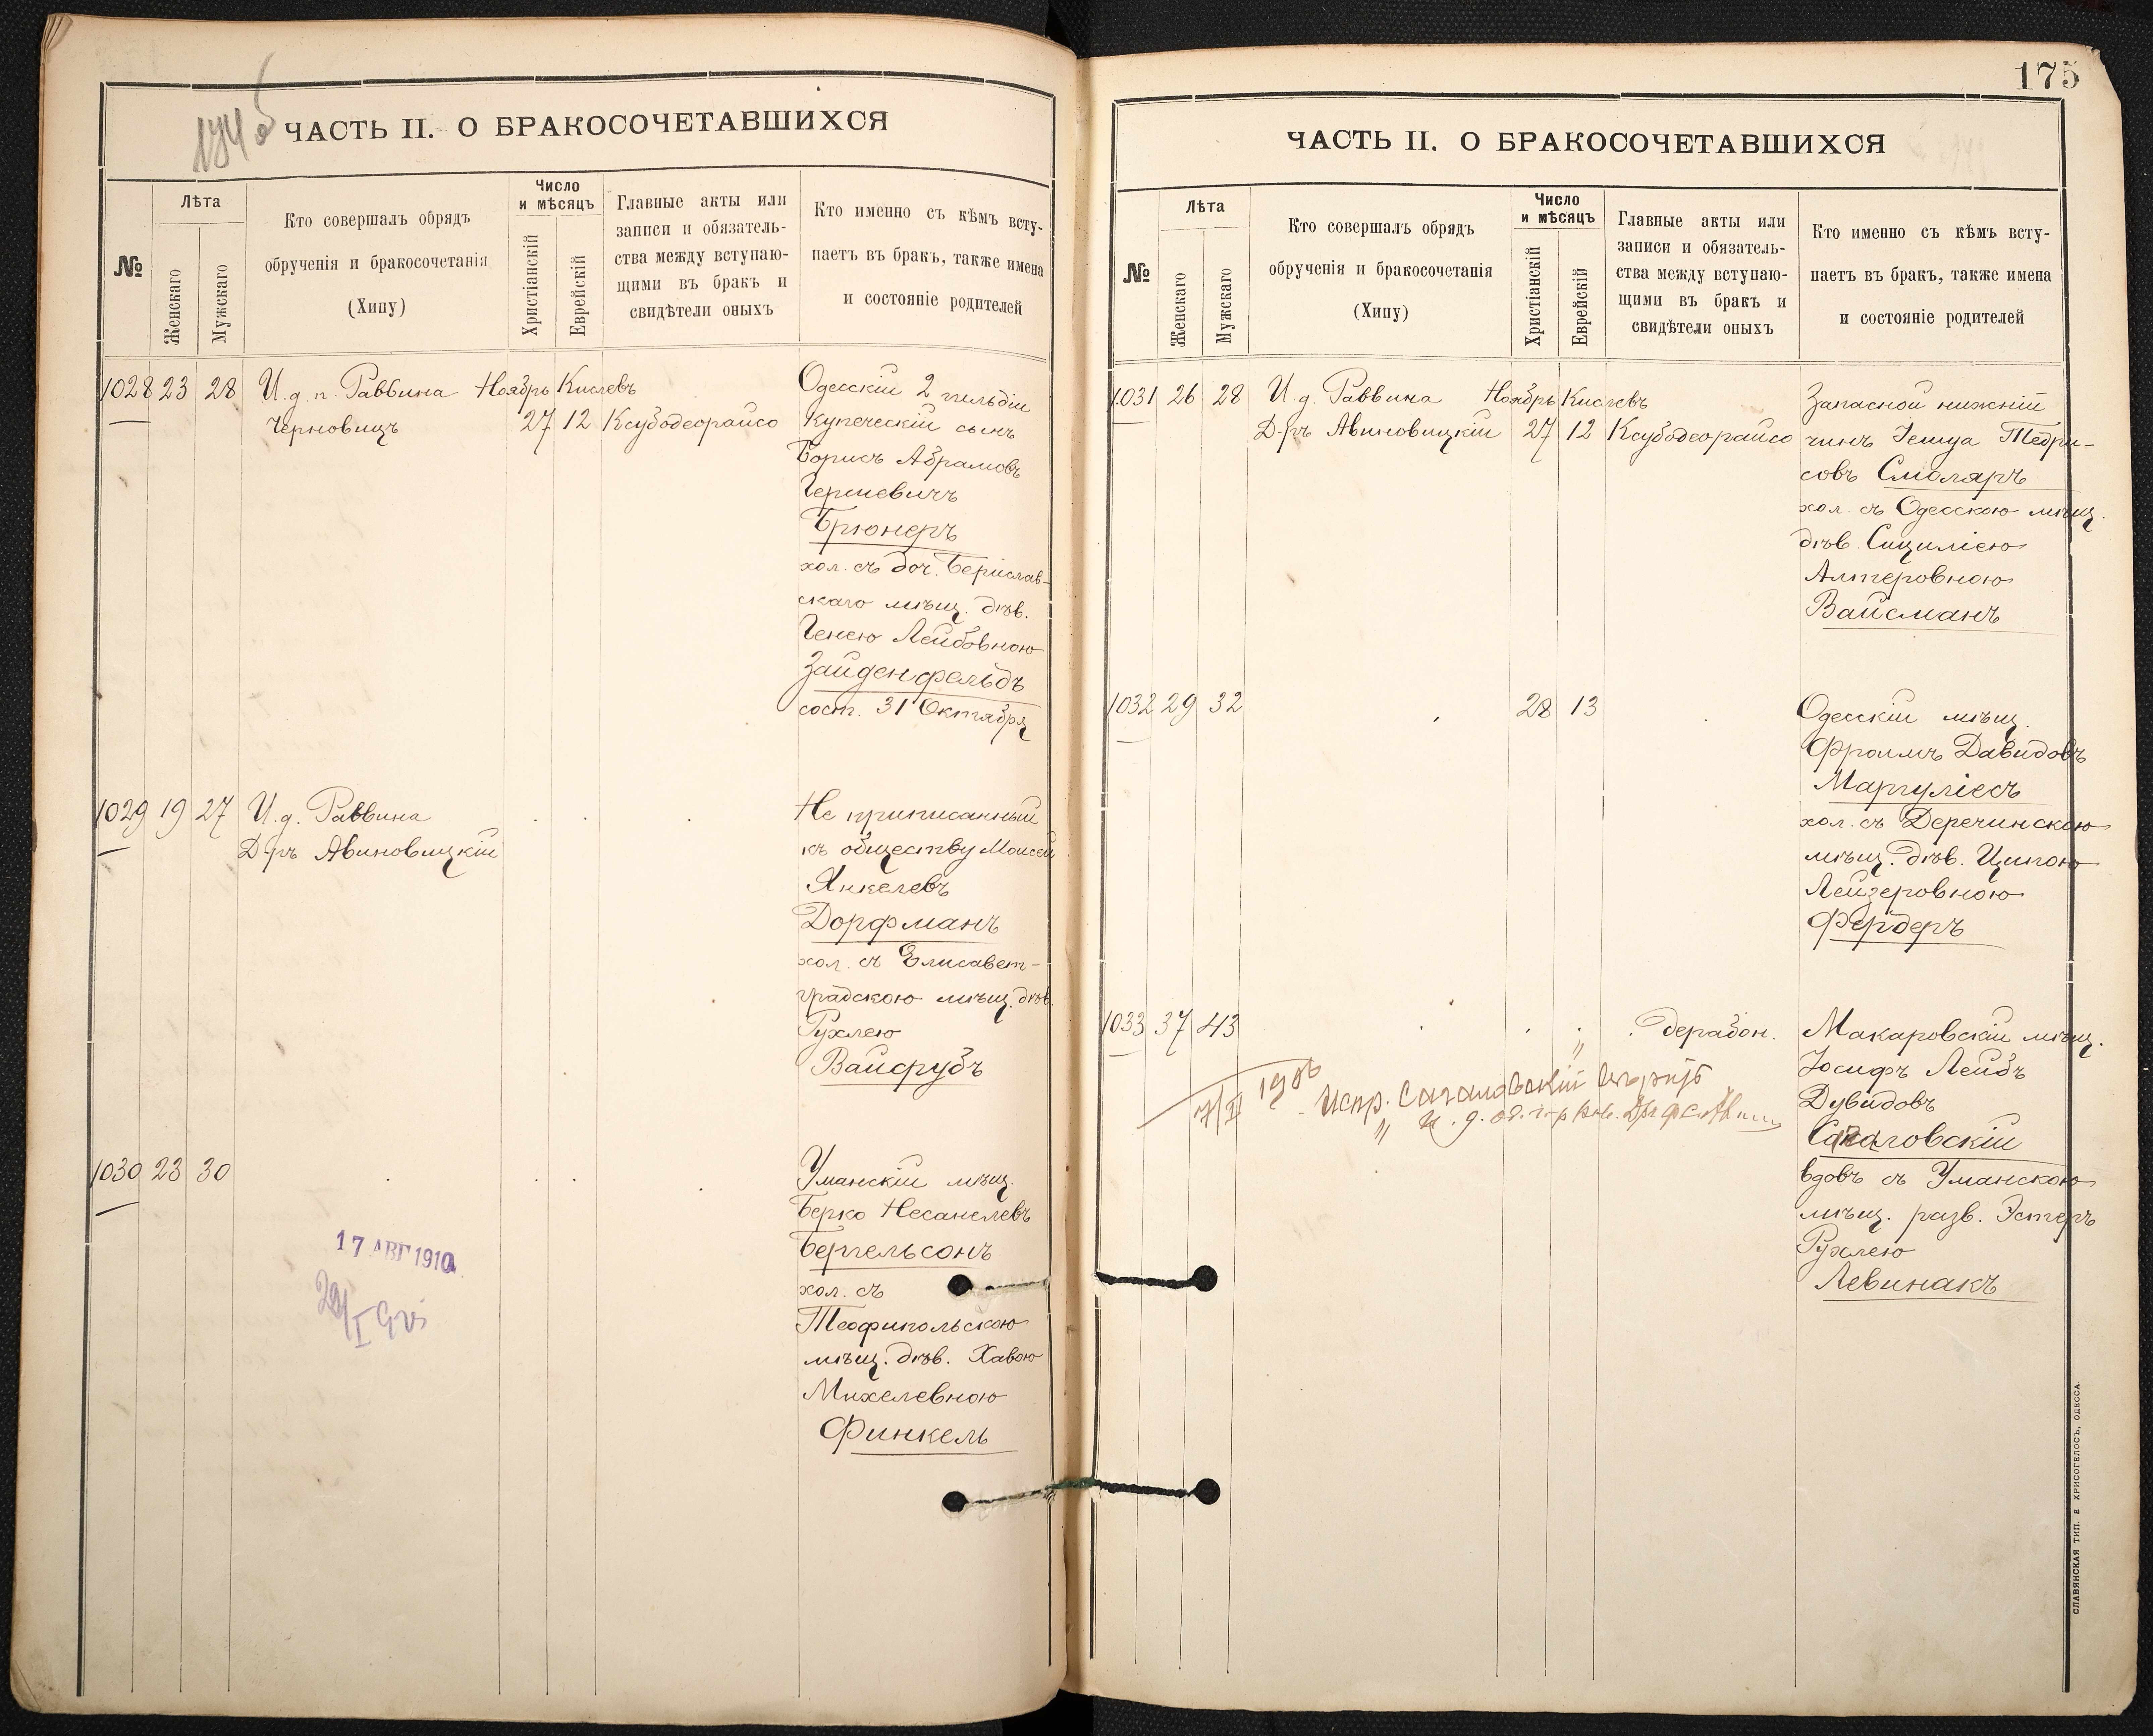 174 об
ЧАСТЬ II. О БРАКОСОЧЕТАВШИХСЯ
№
Лѣта
Женскаго
Мужскаго
Кто совершалъ обрядъ
обрученія и бракосочетанія
(Хипу)
Число
и мѣсяцъ
Христіанскій
Еврейскій
Главные акты или
записи и обязатель-
ства между вступаю-
щими въ бракъ и
свидѣтели оныхъ
Кто именно съ кѣмъ всту-
паетъ въ бракъ, также имена
и состояніе родителей
1028 23 28 И. д. п. Раввина Ноябрь Кислевъ
Черновицъ 27 12 Ксубодеорайсо
Одесскій 2 гильдіи
купеческій сынъ
Борисъ Абрамовъ
Гершевичъ
Брюнеръ
хол. съ доч. Берислав-
скаго мѣщ. дѣв.
Генею Лейбовною
Зайденфельдъ
сост. 31 Октября
1029 19 27 И. д. Раввина
Д-ръ Авиновицкій
Не приписанный
къ обществу Моисей
Янкелевъ
Дорфманъ
хол. съ Елисавет-
градскою мѣщ. дѣв.
Рухлею
Вайсрубъ
1030 23 30
Уманскій мѣщ.
Берко Несанелевъ
Бергельсонъ
хол. съ
Теофипольскою
мѣщ. дѣв. Хавою
Михелевною
Финкель
17 АВГ 1910
175
ЧАСТЬ II. О БРАКОСОЧЕТАВШИХСЯ
№
Лѣта
Женскаго
Мужскаго
Кто совершалъ обрядъ
обрученія и бракосочетанія
(Хипу)
Число
и мѣсяцъ
Христіанскій
Еврейскій
Главные акты или
записи и обязатель-
ства между вступаю-
щими въ бракъ и
свидѣтели оныхъ
Кто именно съ кѣмъ всту-
паетъ въ бракъ, также имена
и состояніе родителей
1031 26 28 И. д. Раввина Ноябрь Кислевъ
Д-ръ Авиновицкій 27 12 Ксубодеорайсо
Запасной нижній
чинъ Іешуа
совъ Смоляръ
хол. съ Одесскою мѣщ.
дѣв. Сициліею
Алтеровною
Вайсманъ
1032 29 32 28 13
Одесскій мѣщ.
Фроимъ Давидовъ
Маргуліесъ
хол. съ Деречинскою
мѣщ. дѣв. Ципою
Лейзеровною
Фердеръ
1033 37 43 " дерабон.
Макаровскій мѣщ.
Іосифъ Лейбъ
Дувидовъ
вдовъ съ Уманскою
мѣщ. разв. Эстеръ
Рухлею
Левинакъ
1906 Испр.
СЛАВЯНСКАЯ ТИП. Е ХРИСОГЕЛОСЪ, ОДЕССА